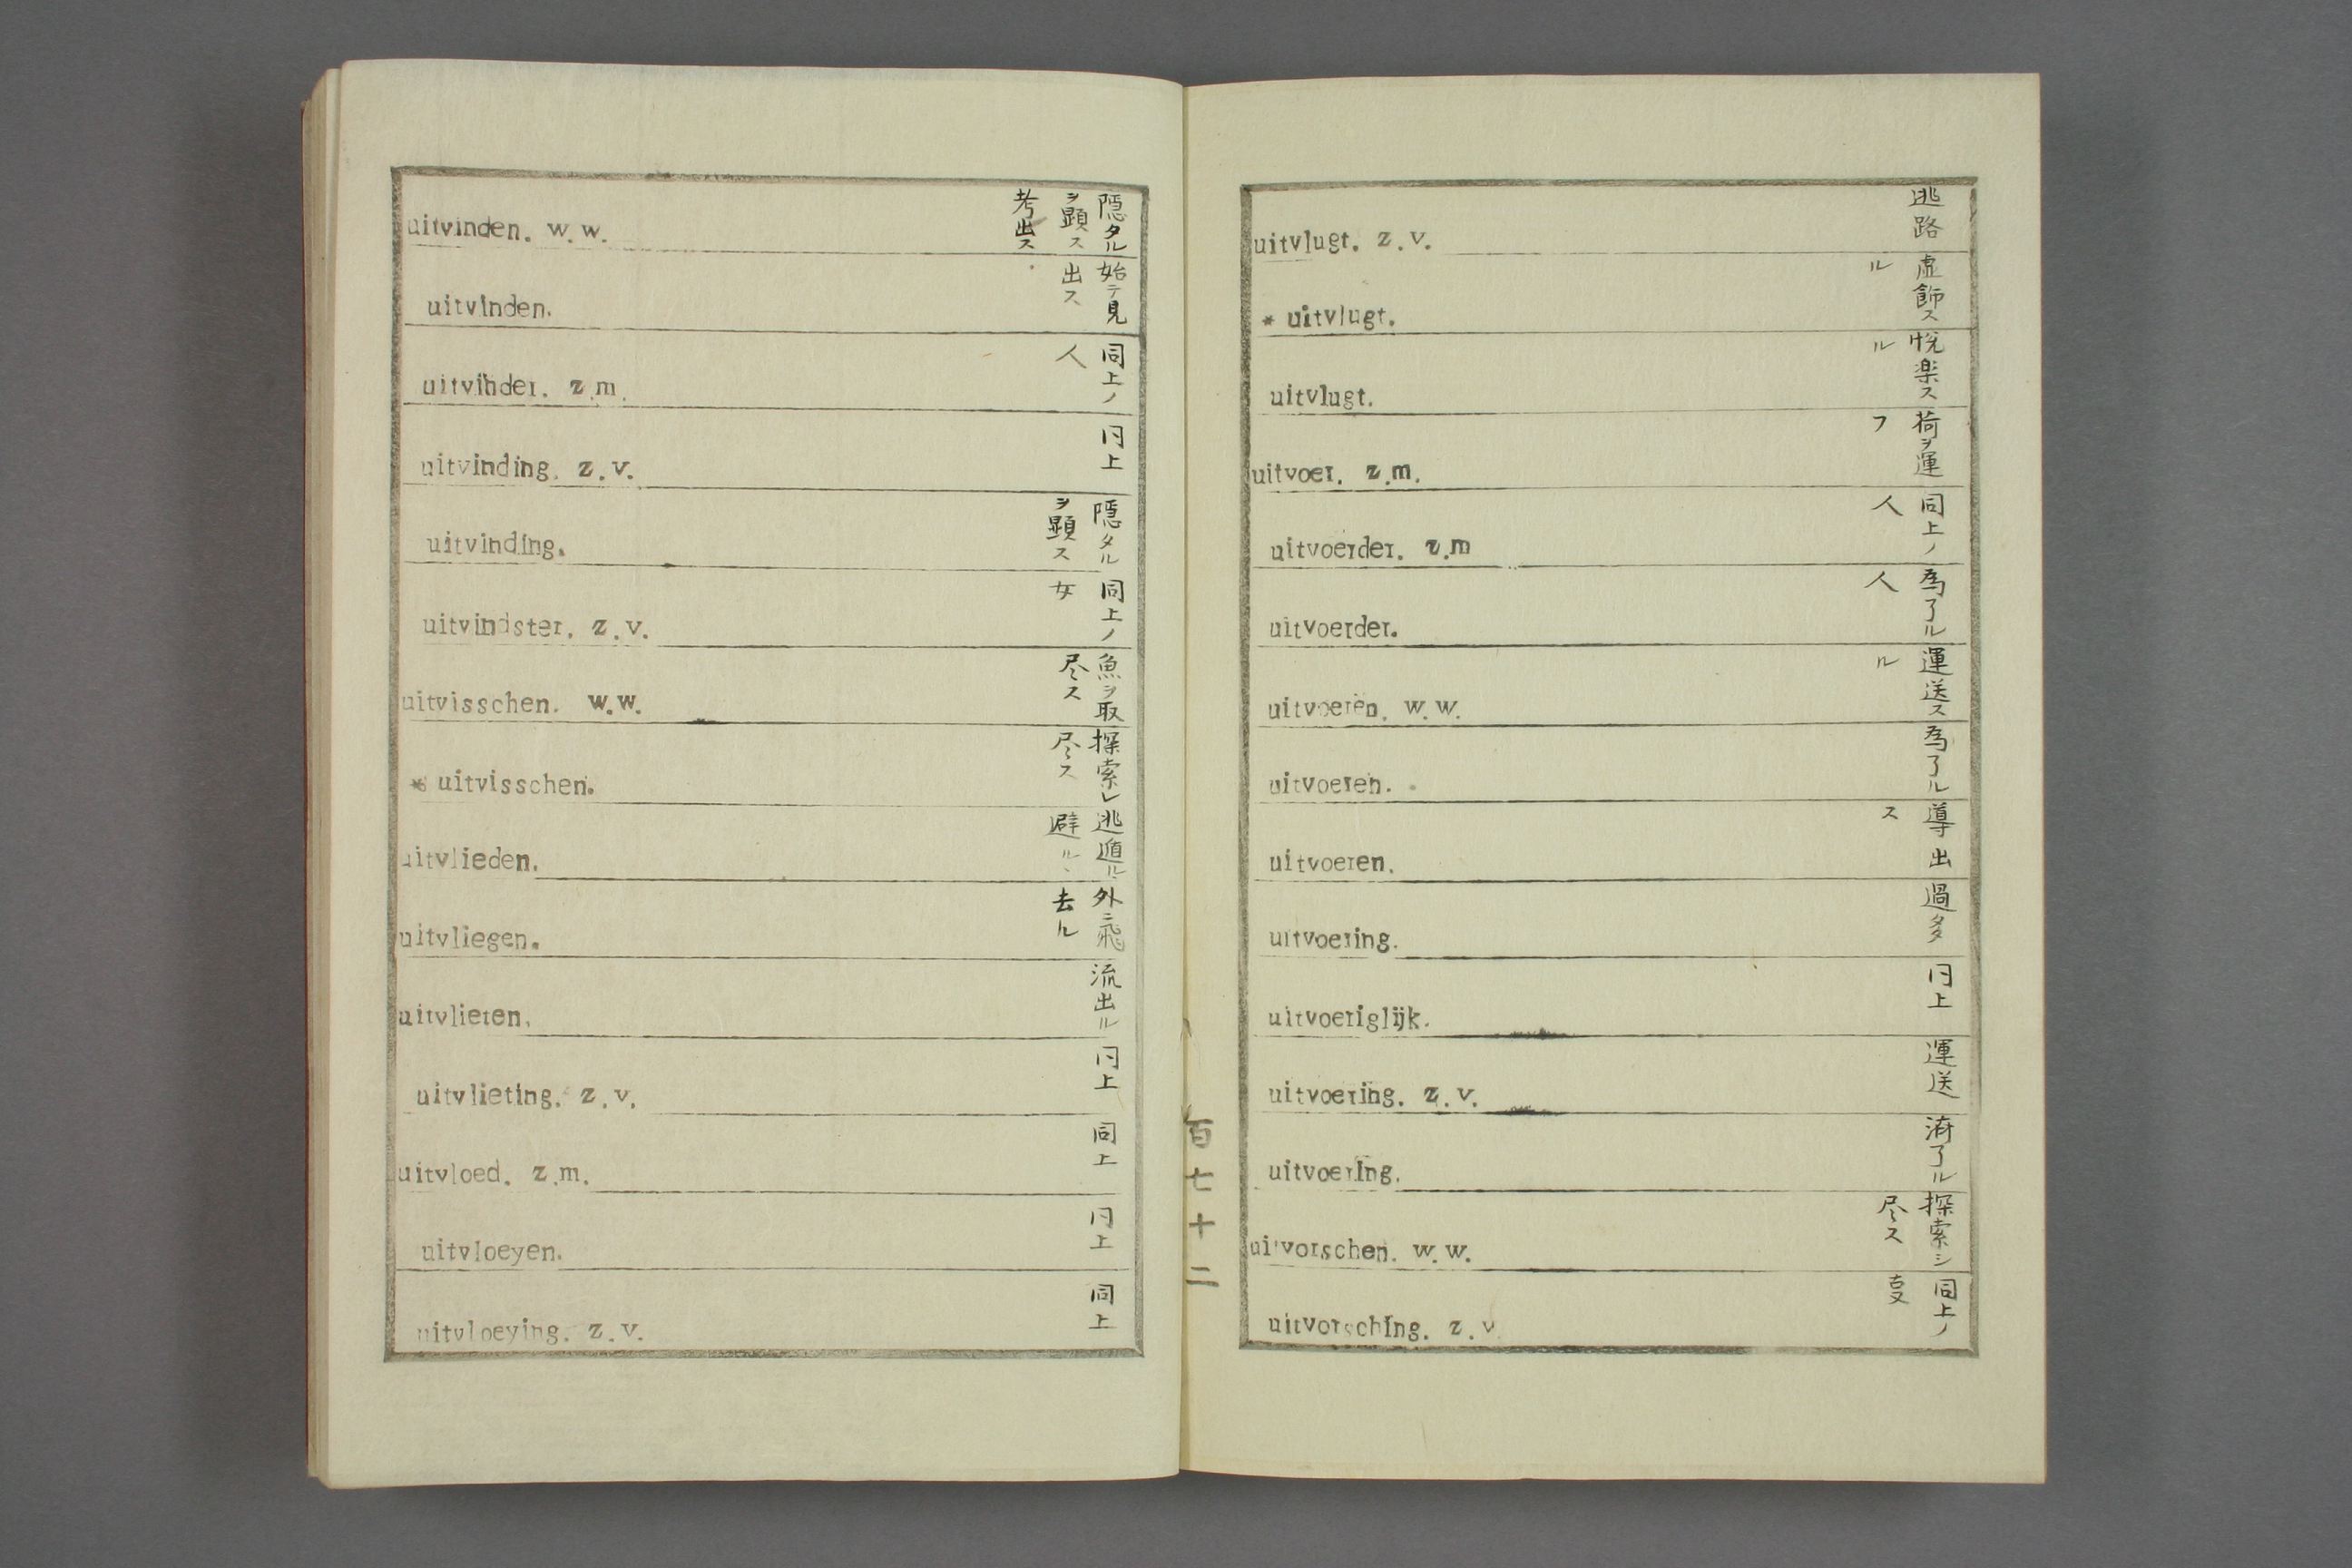 uitvinden. w.w. 隠タルヲ顕ス考出ス
uitvinden. 始テ見出ス
uitvinder. z.m. 同上ノ人
uitvinding. z.v. 同上
uitvinding. 隠タルヲ顕ス
uitvindster. z.v. 同上ノ女
uitvisschen. w.w. 魚ヲ取尽ス
* uitvisschen. 探索シ尽ス
uitvlieden. 逃遁ル避ル
uitvliegen. 外ニ飛去ル
uitvlieten. 流出ル
uitvlieting. z.v. 同上
uitvloed. z.m. 同上
uitvloeyen. 同上
uitvloeying. z.v. 同上
百七十二
uitvlugt. z.v. 逃路
* uitvlugt. 虚飾スル
uitvlugt. 悦楽スル
uitvoer. z.m. 荷ヲ運フ
uitvoerder. z.m 同上ノ人
uitvoerder. 為了ル人
uitvoeren. w.w. 運送スル
uitvoeren. 為了ル
uitvoeren. 導出ス
uitvoering. 過多
uitvoeriglijk. 同上
uitvoering. z.v. 運送
uitvoering. 済了ル
uitvorschen. w.w. 探索シ尽ス
uitvorsching. z.v 同上ノ